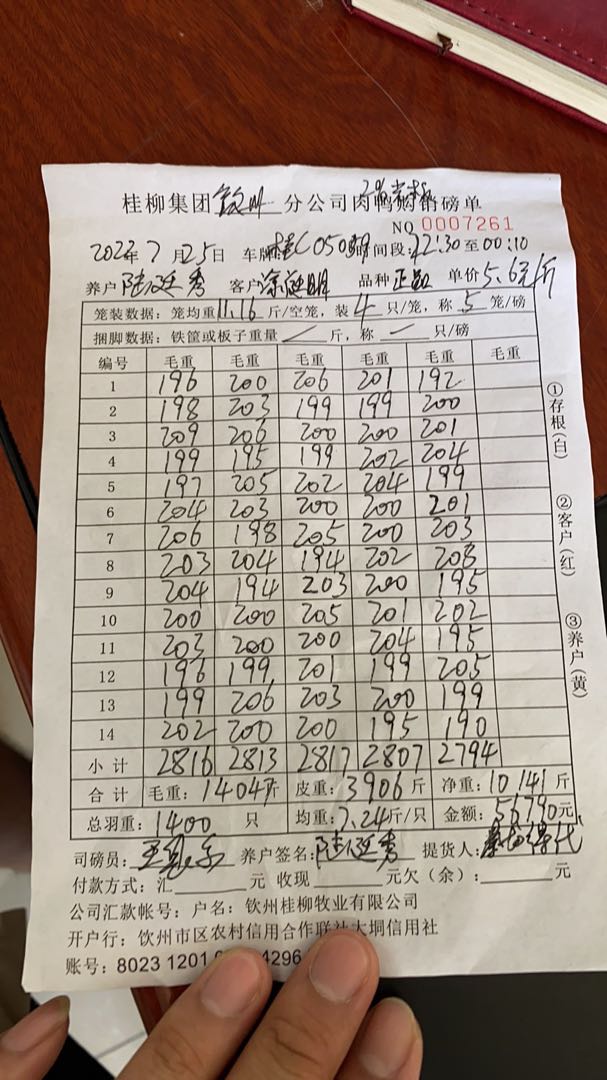 桂柳集团钦州分公司肉鸭购销磅单
NO 0007261
2022年7月25日 车牌桂C050 时间段:22:30至00:10
养户陆廷秀 客户 品种 正品 单价5.6元/斤
笼装数据: 笼均重11.16斤/空笼, 装4只/笼, 称5笼/磅
捆脚数据: 铁筐或板子重量 / 斤, 称 一 只/磅
编号 毛重 毛重 毛重 毛重 毛重 毛重
1 196 200 206 201 192
2 198 203 199 199 200
3 209 206 200 200 201
4 199 195 199 202 204
5 197 205 202 204 199
6 204 203 200 200 201
7 206 198 205 200 203
8 203 204 194 202 208
9 204 194 203 200 195
10 200 200 205 201 202
11 203 200 200 204 195
12 196 199 201 199 205
13 199 206 203 200 199
14 202 200 200 195 190
小计 2816 2813 2817 2807 2794
合计 毛重:14047斤 皮重:3906斤 净重:10141斤
总羽重:1400只 均重:7.24斤/只 金额:56790元
司磅员: 养户签名:陆廷秀 提货人:
付款方式:汇 元 收现 元欠(余): 元
公司汇款帐号: 户名: 钦州桂柳牧业有限公司
开户行: 钦州市区农村信用合作联社大垌信用社
账号: 8023 1201 4296
①存根(白)
②客户(红)
③养户(黄)